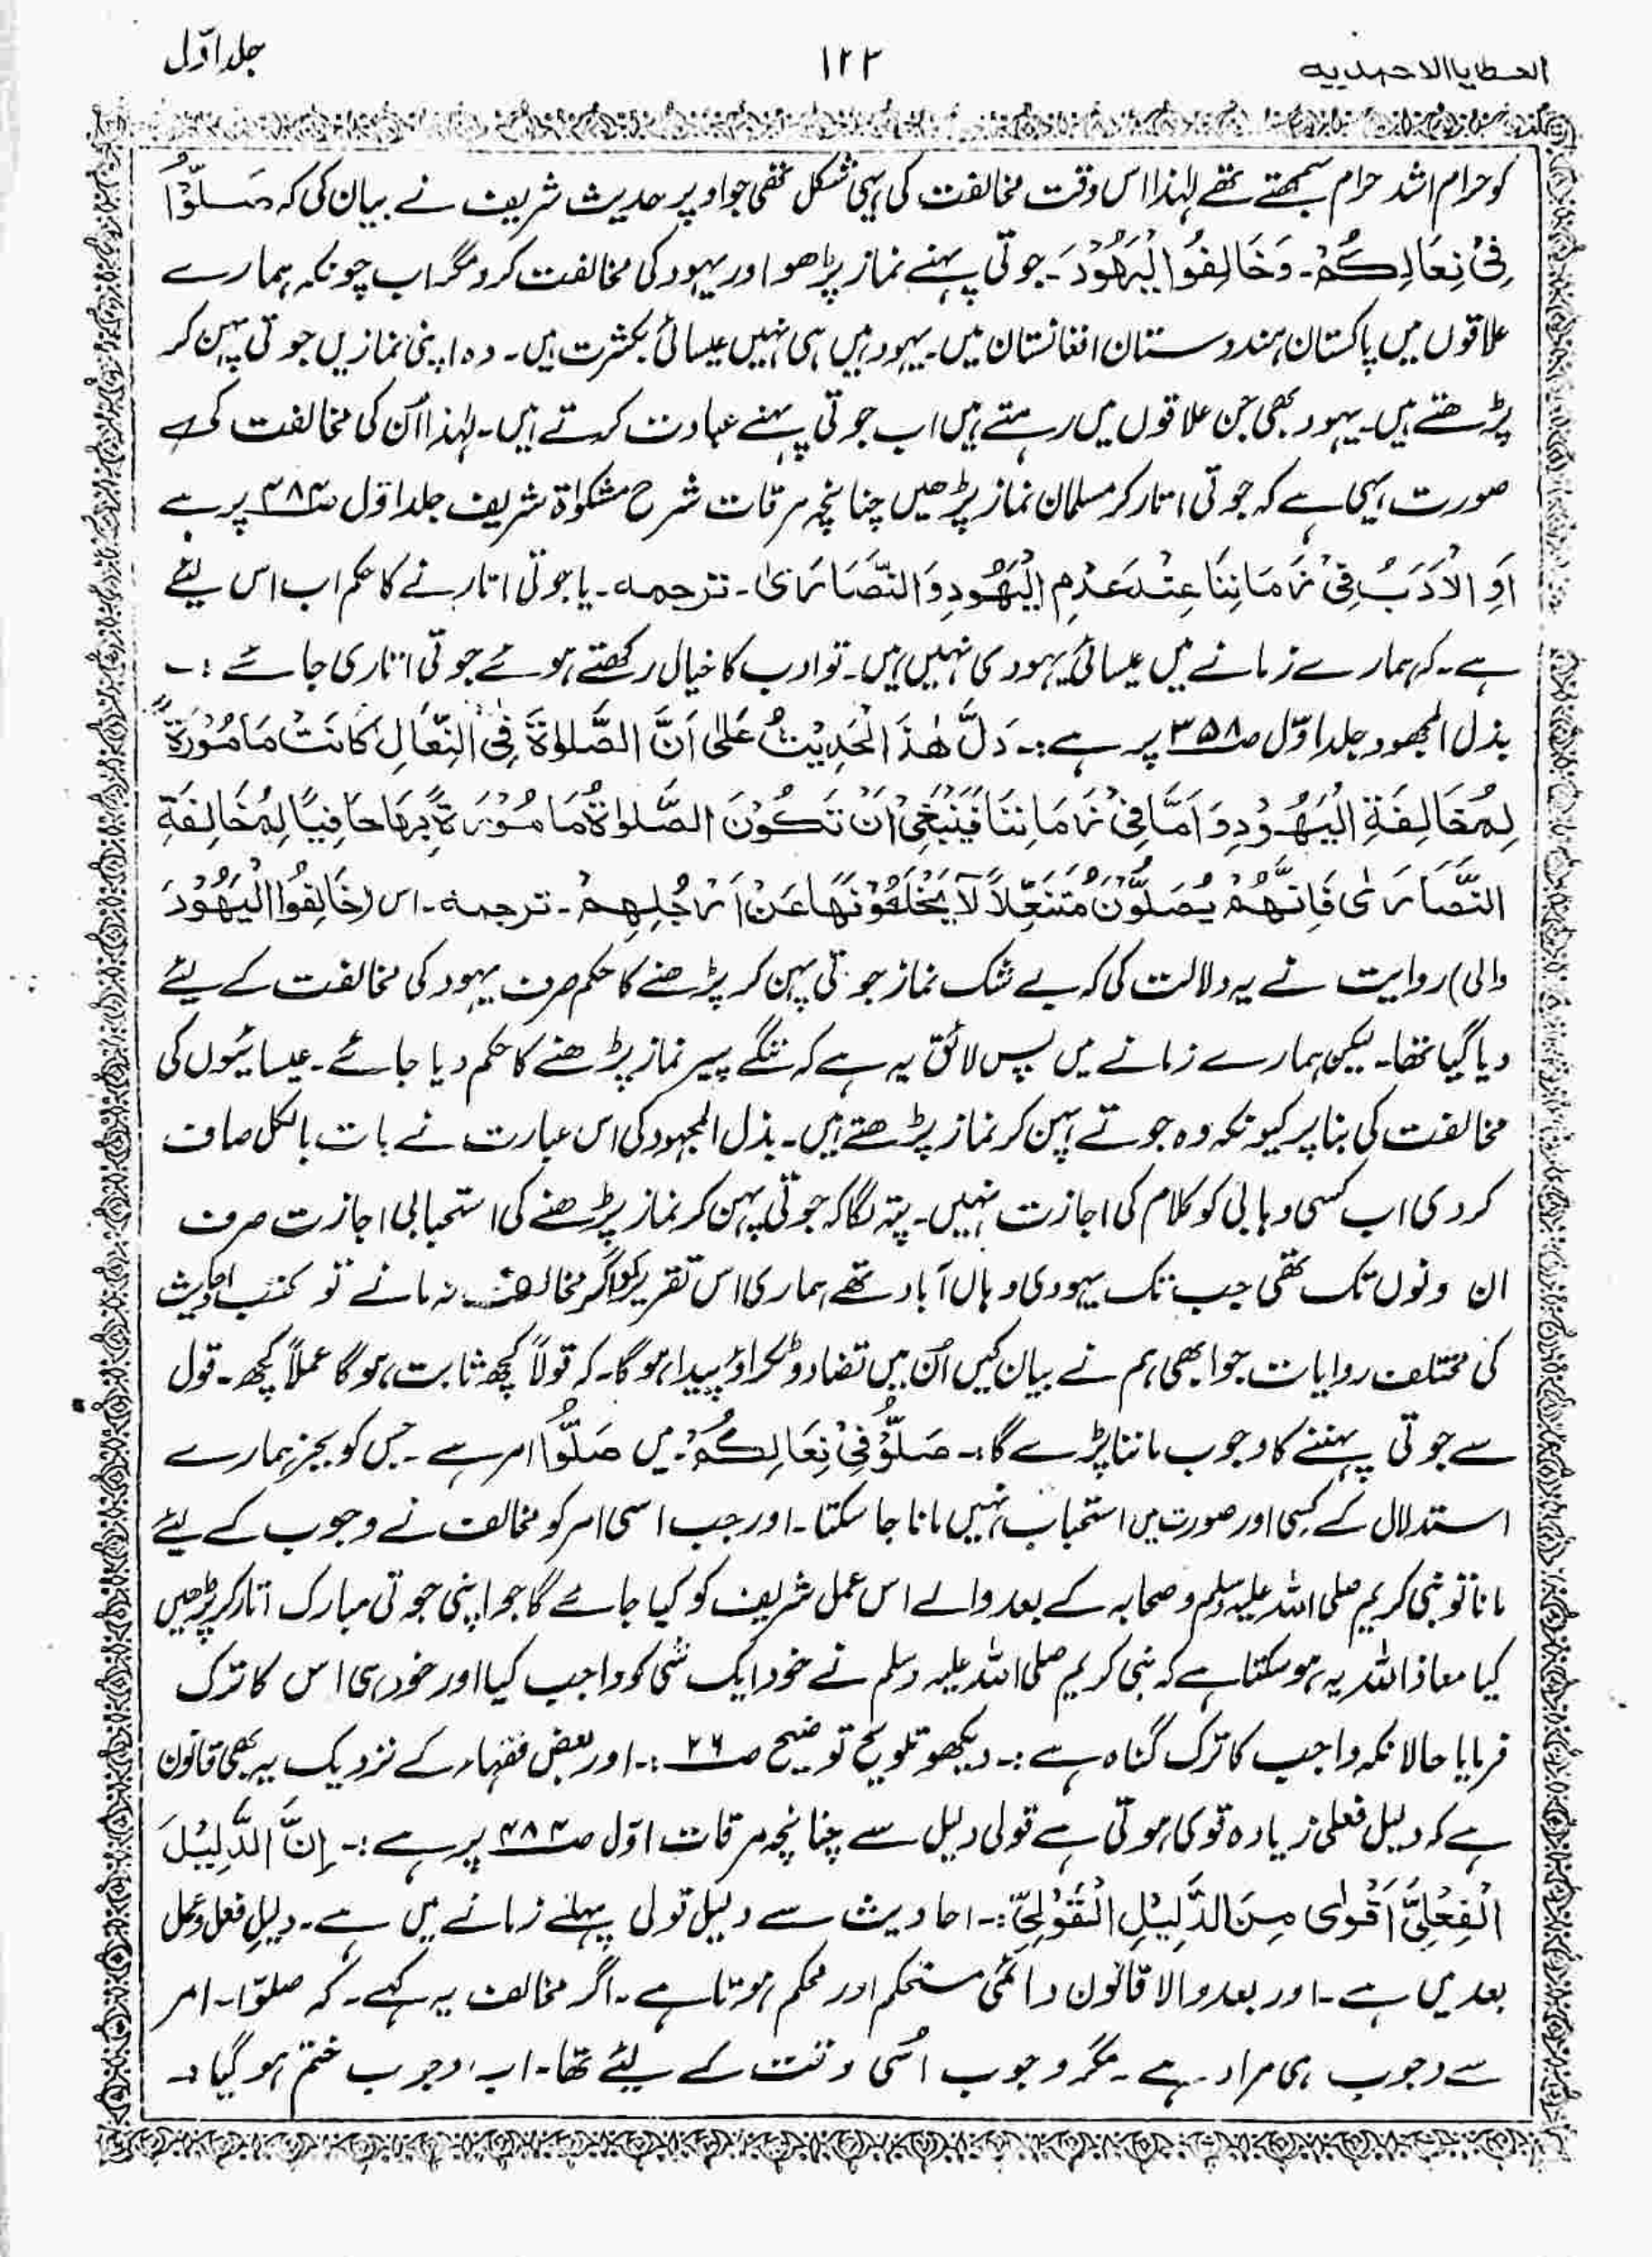 العطایا الاحمدیہ ۱۲۳ جلد اوّل
کو حرام اشد حرام سمجھتے تھے لہٰذا اس وقت مخالفت کی یہی شکل تھی جو اوپر حدیث شریف نے بیان کی کہ صَلُّوْا
فِیْ نِعَالِکُمْ۔ وَخَالِفُوا الْیَھُوْدَ۔ جوتی پہنے نماز پڑھو اور یہود کی مخالفت کرو مگر اب چونکہ ہمارے
علاقوں میں پاکستان ہندوستان افغانستان میں۔ یہود ہیں ہی نہیں عیسائی بکثرت ہیں۔ وہ اپنی نمازیں جوتی پہن کر
پڑھتے ہیں۔ یہود بھی جن علاقوں میں رہتے ہیں اب جوتی پہنے عبادت کرتے ہیں۔ لہٰذا اُن کی مخالفت کی
صورت یہی ہے کہ جوتی اتار کر مسلمان نماز پڑھیں چنانچہ مرقات شرح مشکوٰۃ شریف جلد اوّل صـ۴۸۳ پر ہے
اَوِ الْاَدَبُ فِیْ زَمَانِنَا عِنْدَ عَدْمِ الْیَھُوْدِ وَ النَّصَارٰی۔ ترجمہ۔ یا جوتی اتارنے کا حکم اب اس لیئے
ہے۔ کہ ہمارے زمانے میں عیسائی یہودی نہیں ہیں۔ تو ادب کا خیال رکھتے ہوئے جوتی اتاری جائے :۔
بذل المجھود جلد اوّل صـ۳۵۸ پر ہے:۔ دَلَّ ھٰذَا الْحَدِیْثُ عَلٰی اَنَّ الصَّلوٰۃَ فِی النِّعَالِ کَانَتْ مَامُوْرَۃً
لِمُخَالِفَۃِ الْیَھُوْدِ وَ اَمَّا فِیْ زَمَانِنَا فَیَنْبَغِیْ اَنْ تَکُوْنَ الصَّلوٰۃُ مَامُوْرَۃً بِھَا حَافِیًا لِمُخَالِفَۃِ
النَّصَارٰی فَاِنَّھُمْ یُصَلُّوْنَ مُتَنَعِّلًا لَا یَخْلَعُوْنَھَا عَنْ اَرْجُلِھِمْ۔ ترجمہ۔ اس (خَالِفُوا الْیَھُوْدَ
والی) روایت نے یہ دلالت کی کہ بے شک نماز جوتی پہن کر پڑھنے کا حکم صرف یہود کی مخالفت کے لیئے
دیا گیا تھا۔ لیکن ہمارے زمانے میں پس لائق یہ ہے کہ ننگے پیر نماز پڑھنے کا حکم دیا جائے۔ عیسائیوں کی
مخالفت کی بنا پر کیونکہ وہ جوتے پہن کر نماز پڑھتے ہیں۔ بذل المجہود کی اس عبارت نے بات بالکل صاف
کر دی اب کسی وہابی کو کلام کی اجازت نہیں۔ پتہ لگا کہ جوتی پہن کر نماز پڑھنے کی استحبابی اجازت صرف
ان دنوں تک تھی جب تک یہودی وہاں آباد تھے ہماری اس تقریر کو اگر مخالف نہ مانے تو کتب احادیث
کی مختلف روایات جو ابھی ہم نے بیان کیں اُن میں تضاد و ٹکراؤ پیدا ہو گا۔ کہ قولاً کچھ ثابت ہو گا عملاً کچھ۔ قول
سے جوتی پہننے کا وجوب ماننا پڑے گا:۔ صَلُّوْ فِیْ نِعَالِکُمْ۔ میں صَلُّوا امر ہے ۔ جس کو بجز ہمارے
استدلال کے کسی اور صورت میں استحباب نہیں مانا جا سکتا۔ اور جب اسی امر کو مخالف نے وجوب کے لیئے
مانا تو نبی کریم صلی اللہ علیہ وسلم و صحابہ کے بعد والے اس عمل شریف کو کیا جائے گا جو اپنی جوتی مبارک اتار کر پڑھیں
کیا معاذ اللہ یہ ہو سکتا ہے کہ نبی کریم صلی اللہ علیہ وسلم نے خود ایک شی کو واجب کیا اور خود ہی اس کا ترک
فرمایا حالانکہ واجب کا ترک گناہ ہے :۔ دیکھو تلویح توضیح صـ۲۶ :۔ اور بعض فقہاء کے نزدیک یہ بھی قانون
ہے کہ دلیل فعلی زیادہ قوی ہوتی ہے قولی دلیل سے چنانچہ مرقات اوّل صـ۴۸۳ پر ہے :۔ اِنَّ الدَّلِیْلَ
الْفِعْلِیَّ اَقْوٰی مِنَ الدَّلِیْلِ الْقَوْلِیِّ :۔ احادیث سے دلیل قولی پہلے زمانے میں ہے۔ دلیلِ فعل و عمل
بعد میں ہے۔ اور بعد والا قانون دائمی مستحکم اور محکم ہوتا ہے۔ اگر مخالف یہ کہے۔ کہ صلوّا۔ امر
سے وجوب ہی مراد ہے ۔ مگر وجوب اُسی وقت کے لیئے تھا۔ اب وجوب ختم ہو گیا :۔